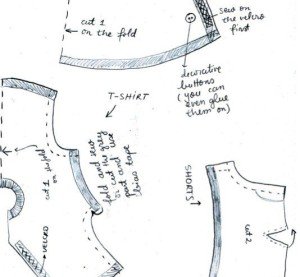 cut 1
on the fold
sew on
the velcro
first
decorative
buttons
(you can
even glue
them on)
T-SHIRT
fold and sew
or cut the grey
part and use
bias tape
cut 1
on
VELCRO
SHORTS
cut 2